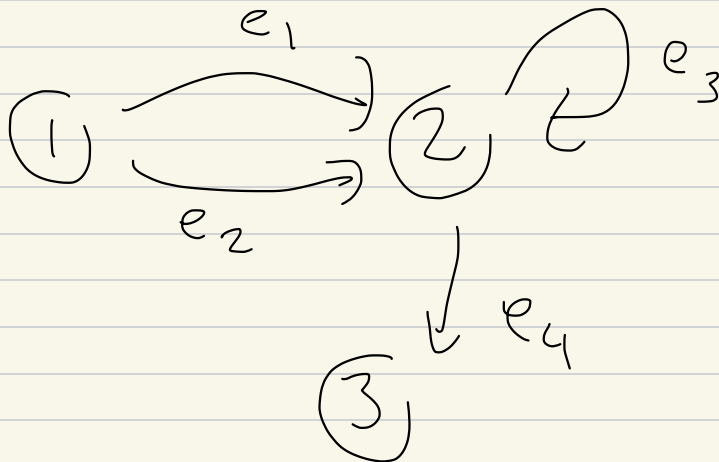 e1
1 2 e3
e2
e4
3